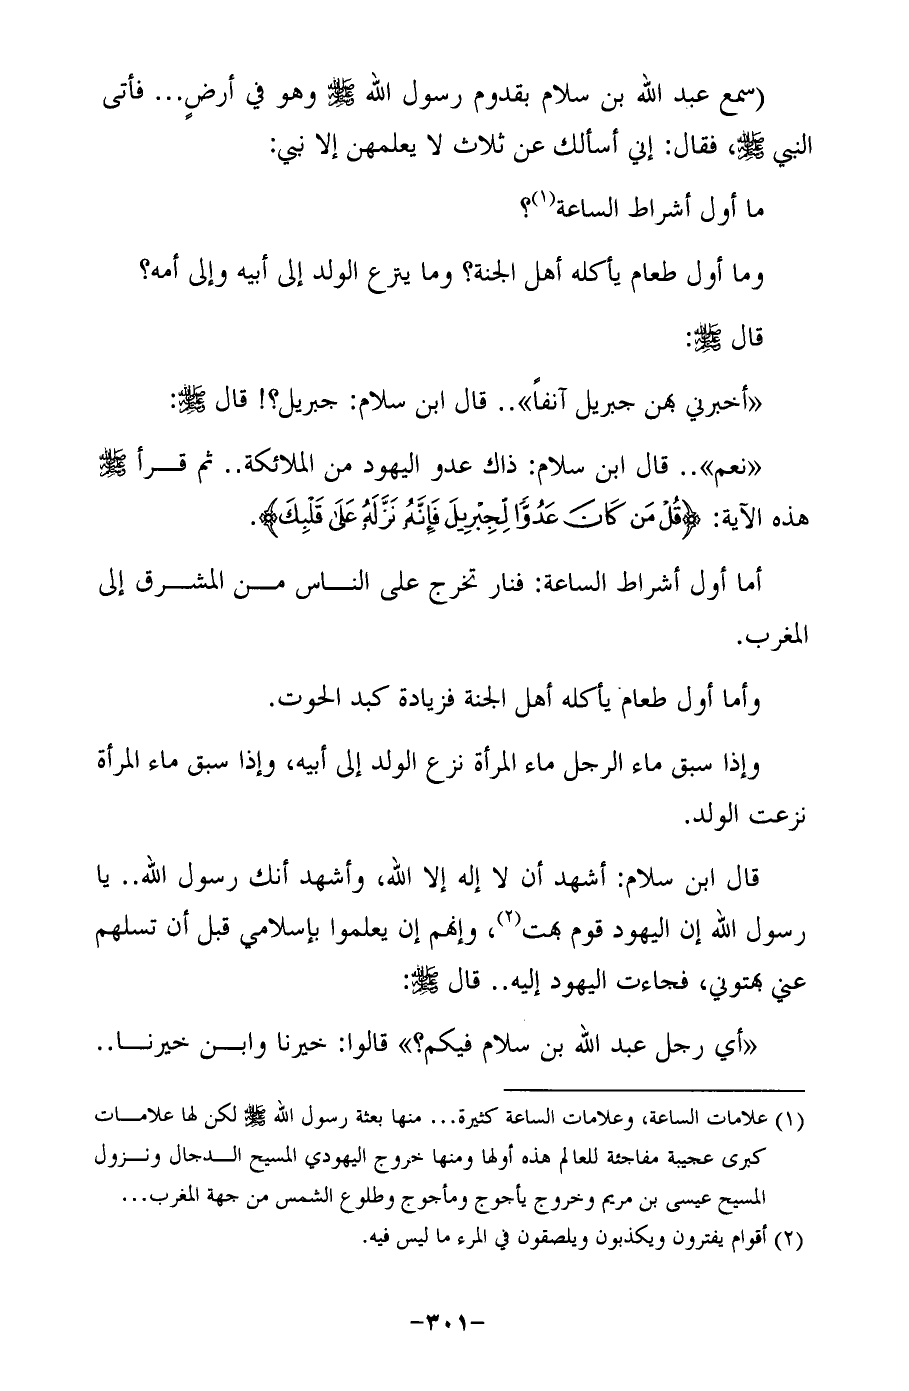 (سمع عبد الله بن سلام بقدوم رسول الله ﷺ وهو في أرضٍ... فأتى
النبي ﷺ، فقال: إني أسألك عن ثلاث لا يعلمهن إلا نبي:
ما أول أشراط الساعة(١)؟
وما أول طعام يأكله أهل الجنة؟ وما ينزع الولد إلى أبيه وإلى أمه؟
قال ﷺ:
«أخبرني بهن جبريل آنفاً».. قال ابن سلام: جبريل؟! قال ﷺ:
«نعم».. قال ابن سلام: ذاك عدو اليهود من الملائكة.. ثم قـــرأ ﷺ
هذه الآية: ﴿قُلْ مَن كَانَ عَدُوًّا لِّجِبْرِيلَ فَإِنَّهُ نَزَّلَهُ عَلَىٰ قَلْبِكَ﴾.
أما أول أشراط الساعة: فنار تخرج على النـــاس مـــن المشـــرق إلى
المغرب.
وأما أول طعام يأكله أهل الجنة فزيادة كبد الحوت.
وإذا سبق ماء الرجل ماء المرأة نزع الولد إلى أبيه، وإذا سبق ماء المرأة
نزعت الولد.
قال ابن سلام: أشهد أن لا إله إلا الله، وأشهد أنك رسول الله.. يا
رسول الله إن اليهود قوم بهت(٢)، وإنهم إن يعلموا بإسلامي قبل أن تسلهم
عني بهتوني، فجاءت اليهود إليه.. قال ﷺ:
«أي رجل عبد الله بن سلام فيكم؟» قالوا: خيرنا وابـــن خيرنـــا..
(١) علامات الساعة، وعلامات الساعة كثيرة... منها بعثة رسول الله ﷺ لكن لها علامـــات
كبرى عجيبة مفاجئة للعالم هذه أولها ومنها خروج اليهودي المسيح الـــدجال ونـــزول
المسيح عيسى بن مريم وخروج يأجوج ومأجوج وطلوع الشمس من جهة المغرب...
(٢) أقوام يفترون ويكذبون ويلصقون في المرء ما ليس فيه.
-٣٠١-